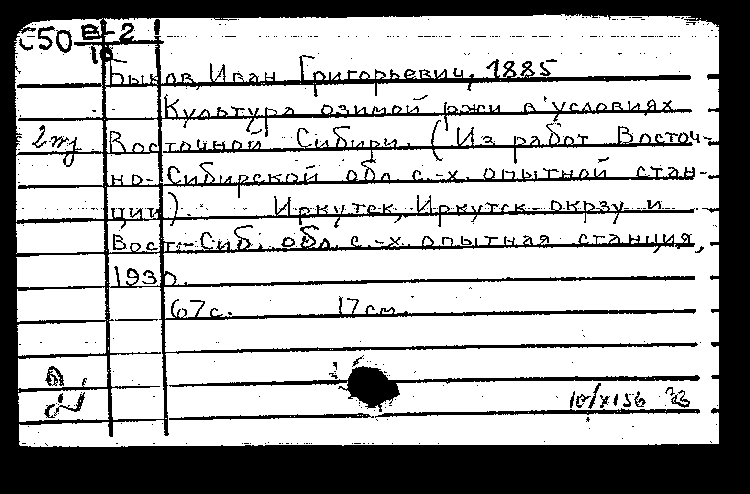 С50 В-2
10
Быков, Иван Григорьевич, 1885
Культура озимой ржи в условиях
Восточной Сибири. (Из работ Восточ-
но-Сибирской обл. с.-х. опытной стан-
ции). Иркутск, Иркутск. окрзу и
Вост.-Сиб. обл. с.-х. опытная станция,
1930.
67с. 17см.